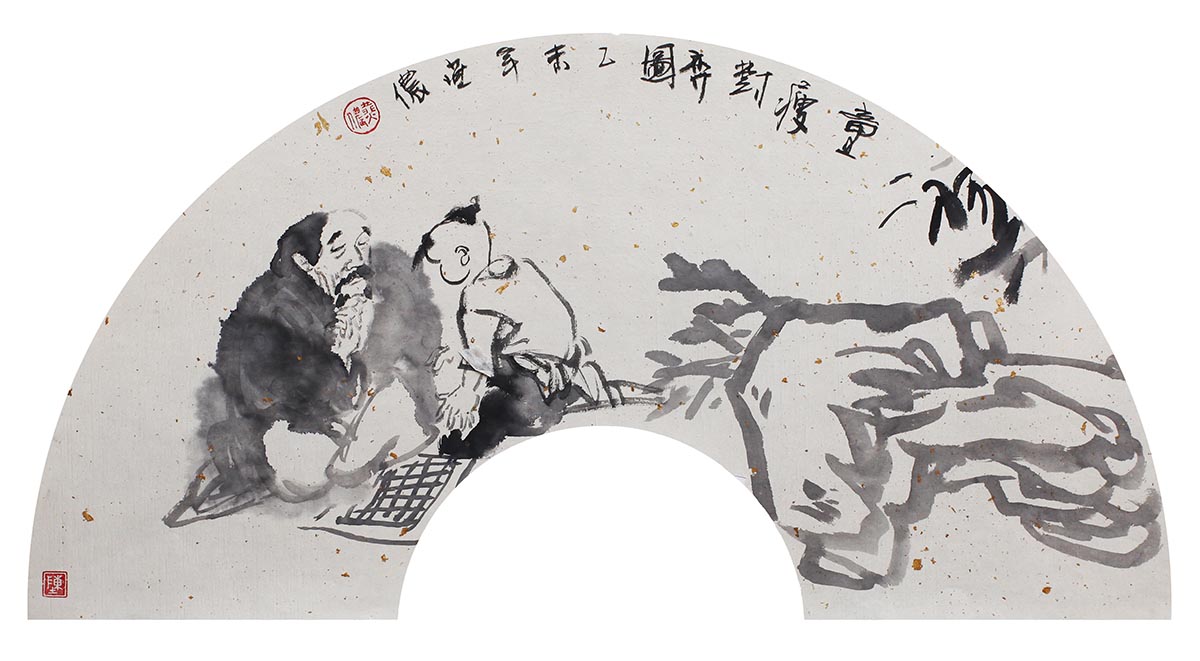 童叟對弈圖乙未年儂
陳